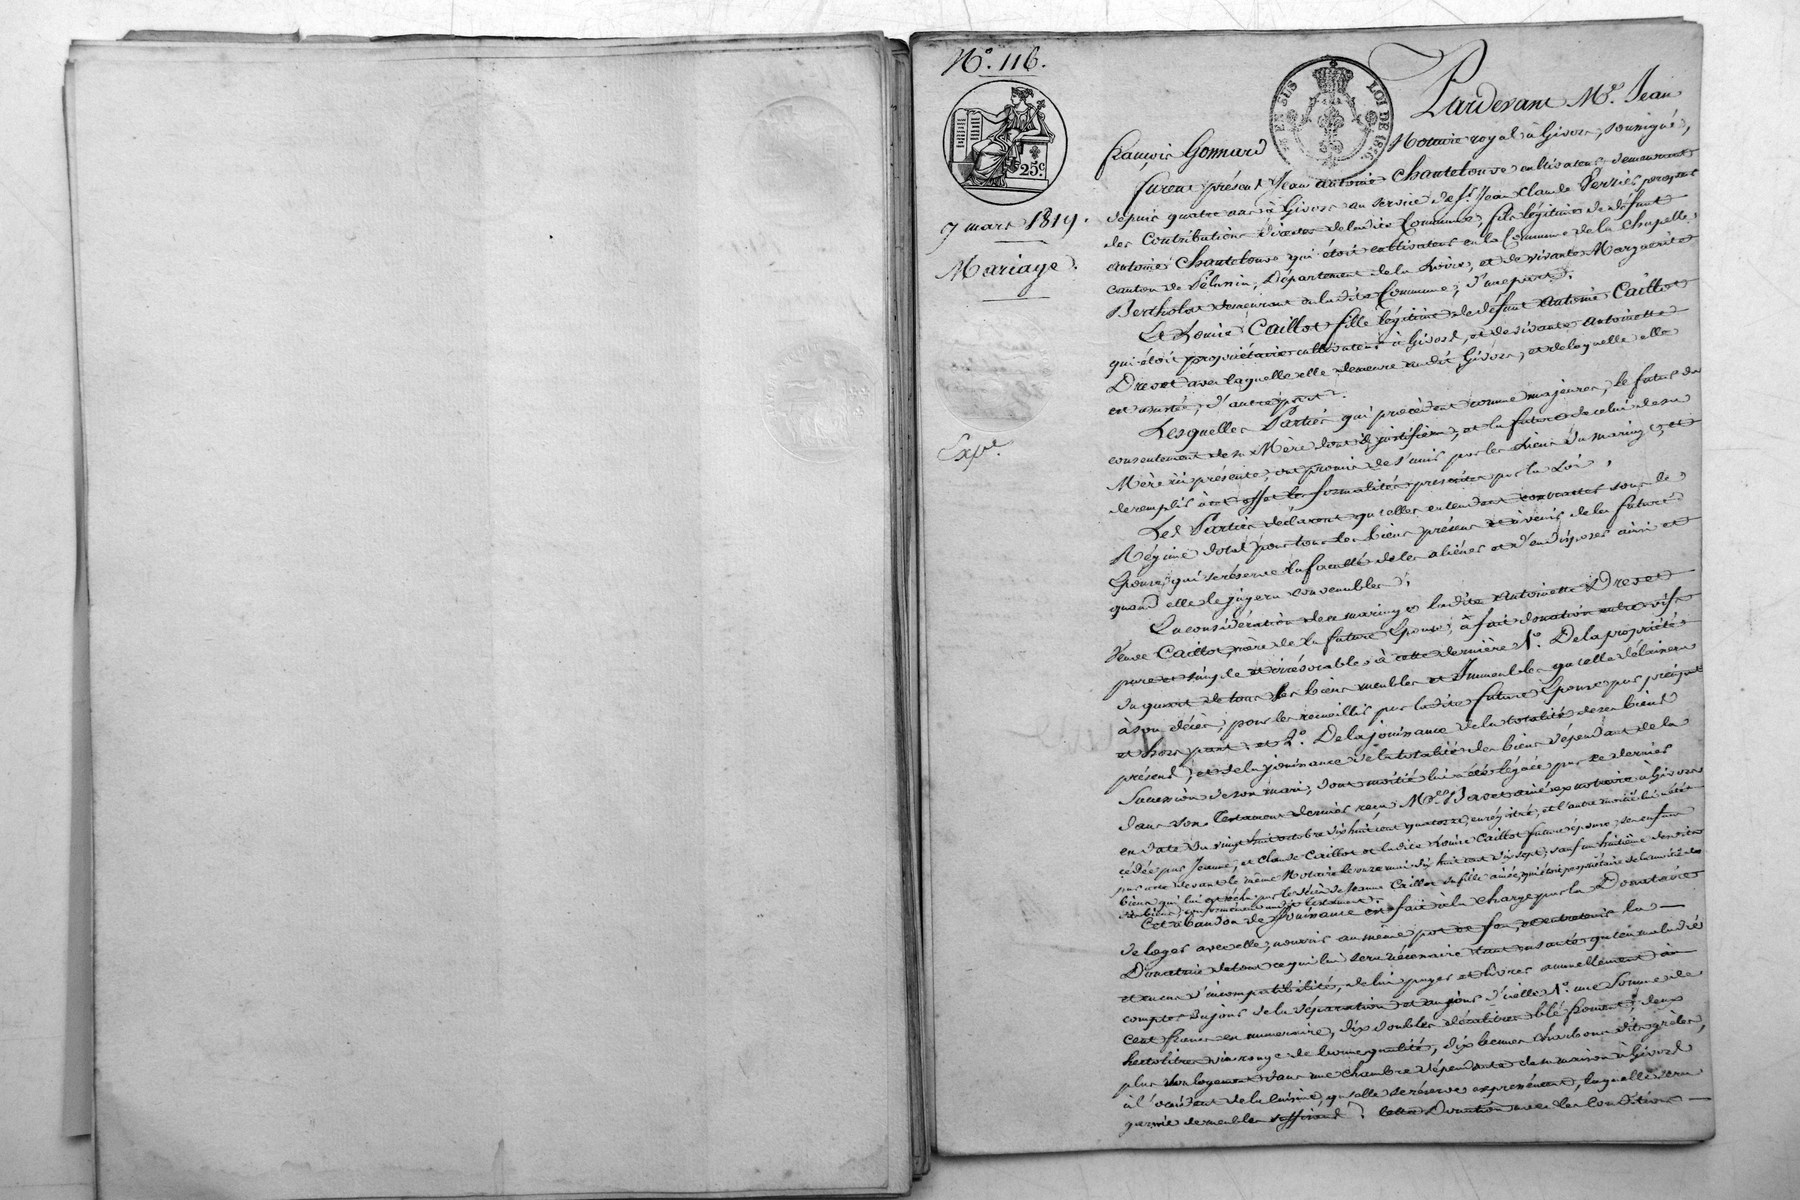 N.° 116.
25.c
7 mars 1819.
Mariage.
Exp.e
EN SUS LOI DE 1816.
Pardevant M.e Jean
françois Gonnard Notaire royal à Givors, soussigné,
furent présent Jean antoine Chantelouve cultivateur, demeurant
depuis quatre ans à Givors au service de S.r Jean Claude Perrier percepteur
des Contributions directes de ladite Commune, fils légitime de défunt
antoine Chantelouve qui étoit cultivateur en la Commune de la Chapelle,
canton de Pélussin, Département de la Loire, et de vivante Marguerite
Bertholat demeurant en ladite Commune; d'une part.
Et Louise Caillot fille légitime de défunt Antoine Caillot
qui étoit propriétaire cultivateur à Givors, et de vivante Antoinette
Drevet avec laquelle elle demeure audit Givors, et de laquelle elle
est assistée, d'autre part.
Lesquelles Parties qui procèdent comme majeures, le futur du
consentement de sa Mère dont il justifiera, et la future de celui de sa
Mère ici présente, ont promis de s'unir par les Liens du mariage, et
de remplir à cet effet les formalités prescrites par la Loi,
Les Parties déclarent qu'elles entendent contracter sous le
Régime dotal pour tous les biens présens et à venir de la future
Epouse, qui se réserve la faculté de les aliéner et d'en disposer ainsi et
quand elle le jugera convenable,
En considération de ce mariage ladite Antoinette Drevet
Veuve Caillot, mère de la future Epouse, à fait donation entre vifs
pure et simple et irrévocable à cette dernière 1.° De la propriété
du quart de tous les biens meubles et Immeubles qu'elle délaissera
à son décès, pour les recueillir par ladite future Epouse par préciput
et hors part, et 2.° De la jouissance de la totalité de ses biens
présens, et de la jouissance de la totalité des biens dépendant de la
Succession de son mari, dont moitié lui a été léguée par ce dernier
dans son Testament dernier, reçu M.e Bavet ainé ex notaire à Givors
en date du vingt huit octobre dix huit cent quatorze, enrégistré, et l'autre moitié lui a été
cédée par Jeanne, et Claude Caillot et ladite Louise Caillot future épouse, ses enfans
par acte devant le même Notaire le onze mai dix huit cent dix sept; sauf un huitième desdits
biens qui lui est échu par le décès de Jeanne Caillot sa fille ainée, qui étoit propriétaire de la moitié des
dits biens, conformément audit testament.
Cet abandon de jouissance est fait à la charge par la Donataire
de loger avec elle, nourrir au même pot et feu, et entretenir la
Donatrice de tout ce qui lui sera nécessaire tant en santé qu'en maladie
et en cas d'incompatibilité, de lui payer et livrer annuellement à
compter du jour de la séparation et au jour d'icelle 1.° une Somme de
cent francs en numéraire, dix doubles décalitres blé froment, deux
hectolitres vin rouge de bonne qualité, dix bennes charbons dits grêles,
plus son logement dans une chambre dépendante de sa maison à Givors
à l'occident de la cuisine, qu'elle se réserve expressément, laquelle sera
garnie de meubles suffisans. Cette Donation avec les Conditions